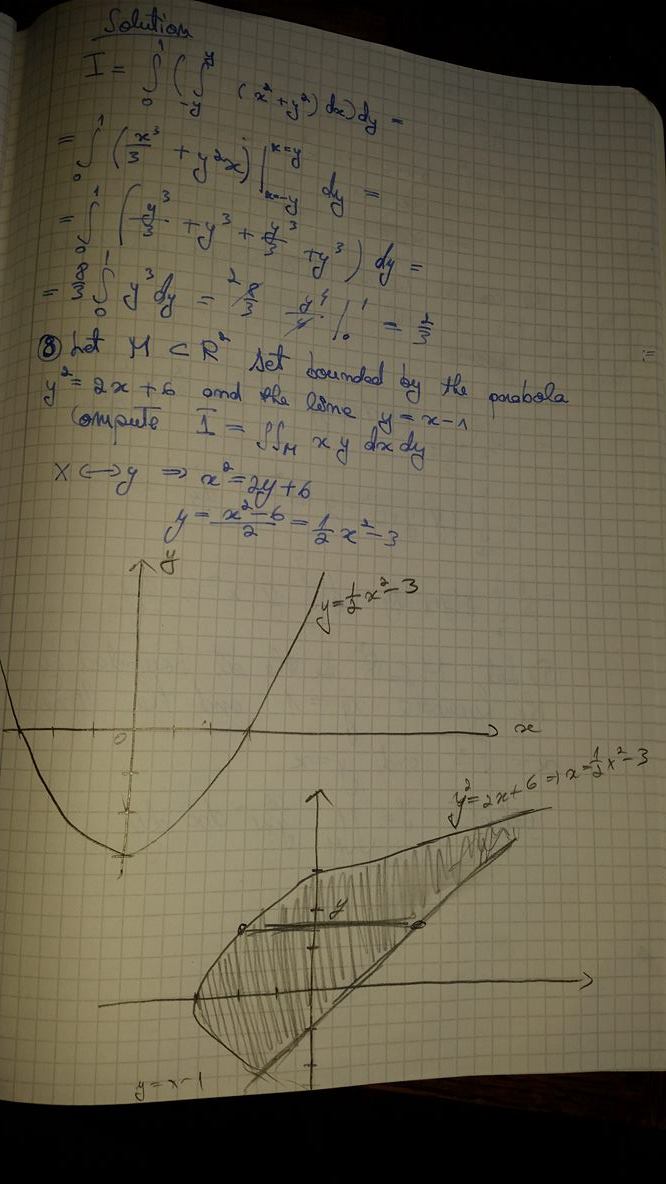 Solution
I = ∫₀¹ ( ∫₋yʸ (x² + y²) dx) dy =
= ∫₀¹ (x³/3 + y²x) |ₓ₌₋yˣ⁼ʸ dy =
= ∫₀¹ (y³/3 + y³ + y³/3 + y³) dy =
= 8/3 ∫₀¹ y³ dy = 8/3 2 y⁴/4 |₀¹ = 2/3
⑧ Let M ⊂ R² set bounded by the parabola
y² = 2x + 6 and the line y = x - 1
Compute I = ∬M x y dx dy
X ⟷ y ⇒ x² = 2y + 6
y = x² - 6 / 2 = 1/2 x² - 3
y
y = 1/2 x² - 3
0
x
y² = 2x + 6 ⇒ x = 1/2 x² - 3
y
y = x - 1